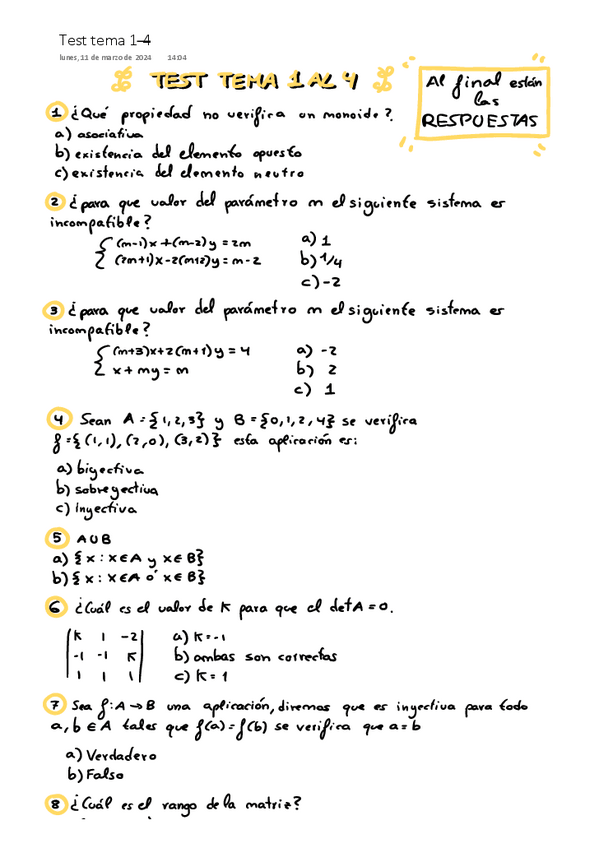 Test tema 1-4
lunes, 11 de marzo de 2024 14:04
TEST TEMA 1 AL 4
Al final están
las
RESPUESTAS
1 ¿Qué propiedad no verifica un monoide?
a) asociativa
b) existencia del elemento opuesto
c) existencia del elemento neutro
2 ¿para que valor del parámetro m el siguiente sistema es
incompatible?
{ (m-1)x+(m-2)y = 2m
(2m+1)x-2(m+2)y = m-2
a) 1
b) 1/4
c) -2
3 ¿para que valor del parámetro m el siguiente sistema es
incompatible?
{ (m+3)x+2(m+1)y = 4
x + my = m
a) -2
b) 2
c) 1
4 Sean A = {1,2,3} y B = {0,1,2,4} se verifica
f = {(1,1), (2,0), (3,2)} esta aplicación es:
a) biyectiva
b) sobreyectiva
c) inyectiva
5 A∪B
a) {x : x∈A y x∈B}
b) {x : x∈A ó x∈B}
6 ¿Cuál es el valor de K para que el det A = 0.
| K 1 -2 |
| -1 -1 K |
| 1 1 1 |
a) K=-1
b) ambas son correctas
c) K = 1
7 Sea f: A → B una aplicación, diremos que es inyectiva para todo
a, b ∈ A tales que f(a) = f(b) se verifica que a = b
a) Verdadero
b) Falso
8 ¿Cuál es el rango de la matriz?